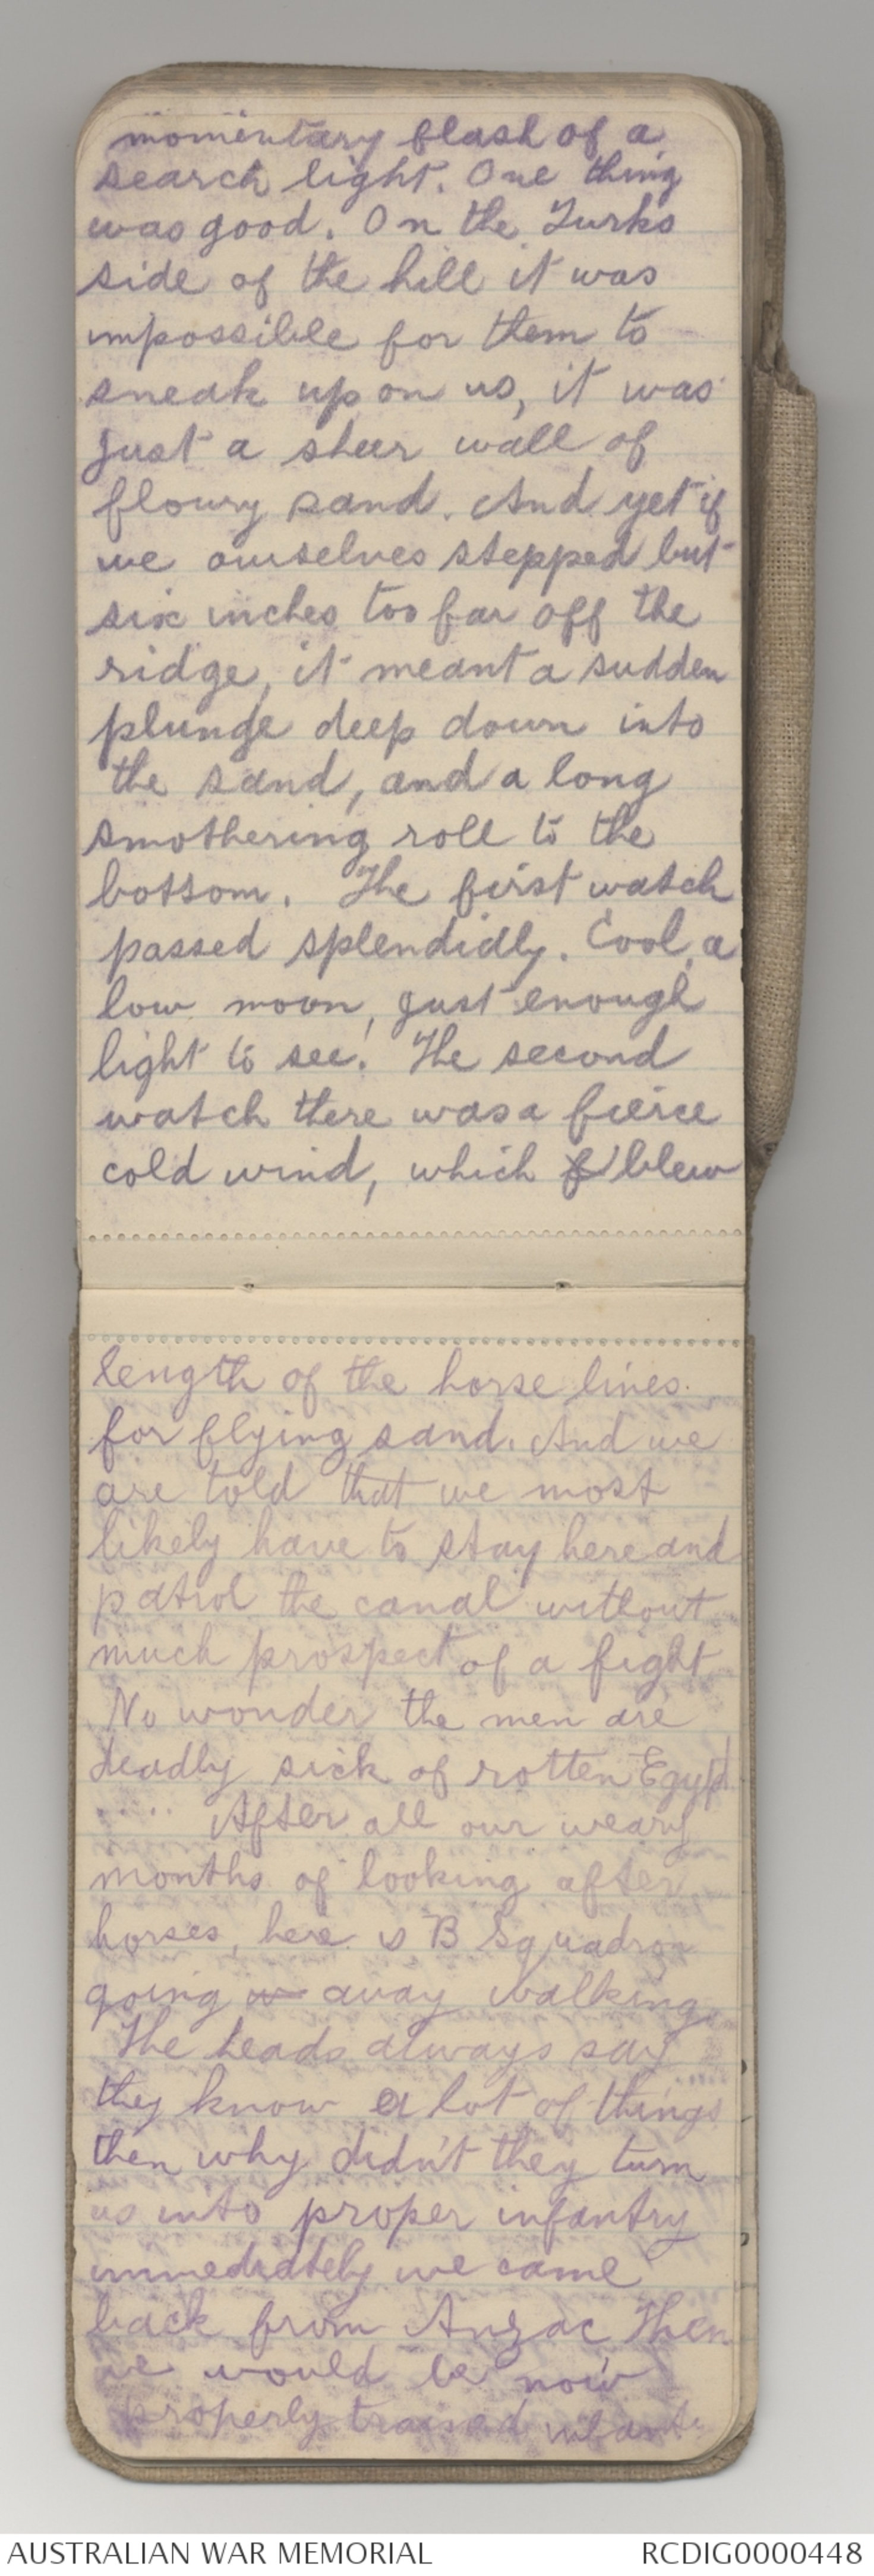 momentary flash of a
search light. One thing
was good. On the Turks
side of the hill it was
impossible for them to
sneak up on us, it was
just a sheer wall of
floury sand. And yet if
we ourselves stepped but
six inches too far off the
ridge, it meant a sudden
plunge deep down into
the sand, and a long
smothering roll to the
bottom. The first watch
passed splendidly. Cool, a
low moon, just enough
light to see. The second
watch there was a fierce
cold wind, which f blew
length of the horse lines
for flying sand. And we
are told that we most
likely have to stay here and
patrol the canal without
much prospect of a fight
No wonder the men are
deadly sick of rotten Egypt
..... After all our weary
months of looking after
horses, here is B Squadron
going away walking.
The heads always say
they know a lot of things
then why didn't they turn
us into proper infantry
immediately we came
back from Anzac Then
we would be now
properly trained
AUSTRALIAN WAR MEMORIAL
RCDIG0000448